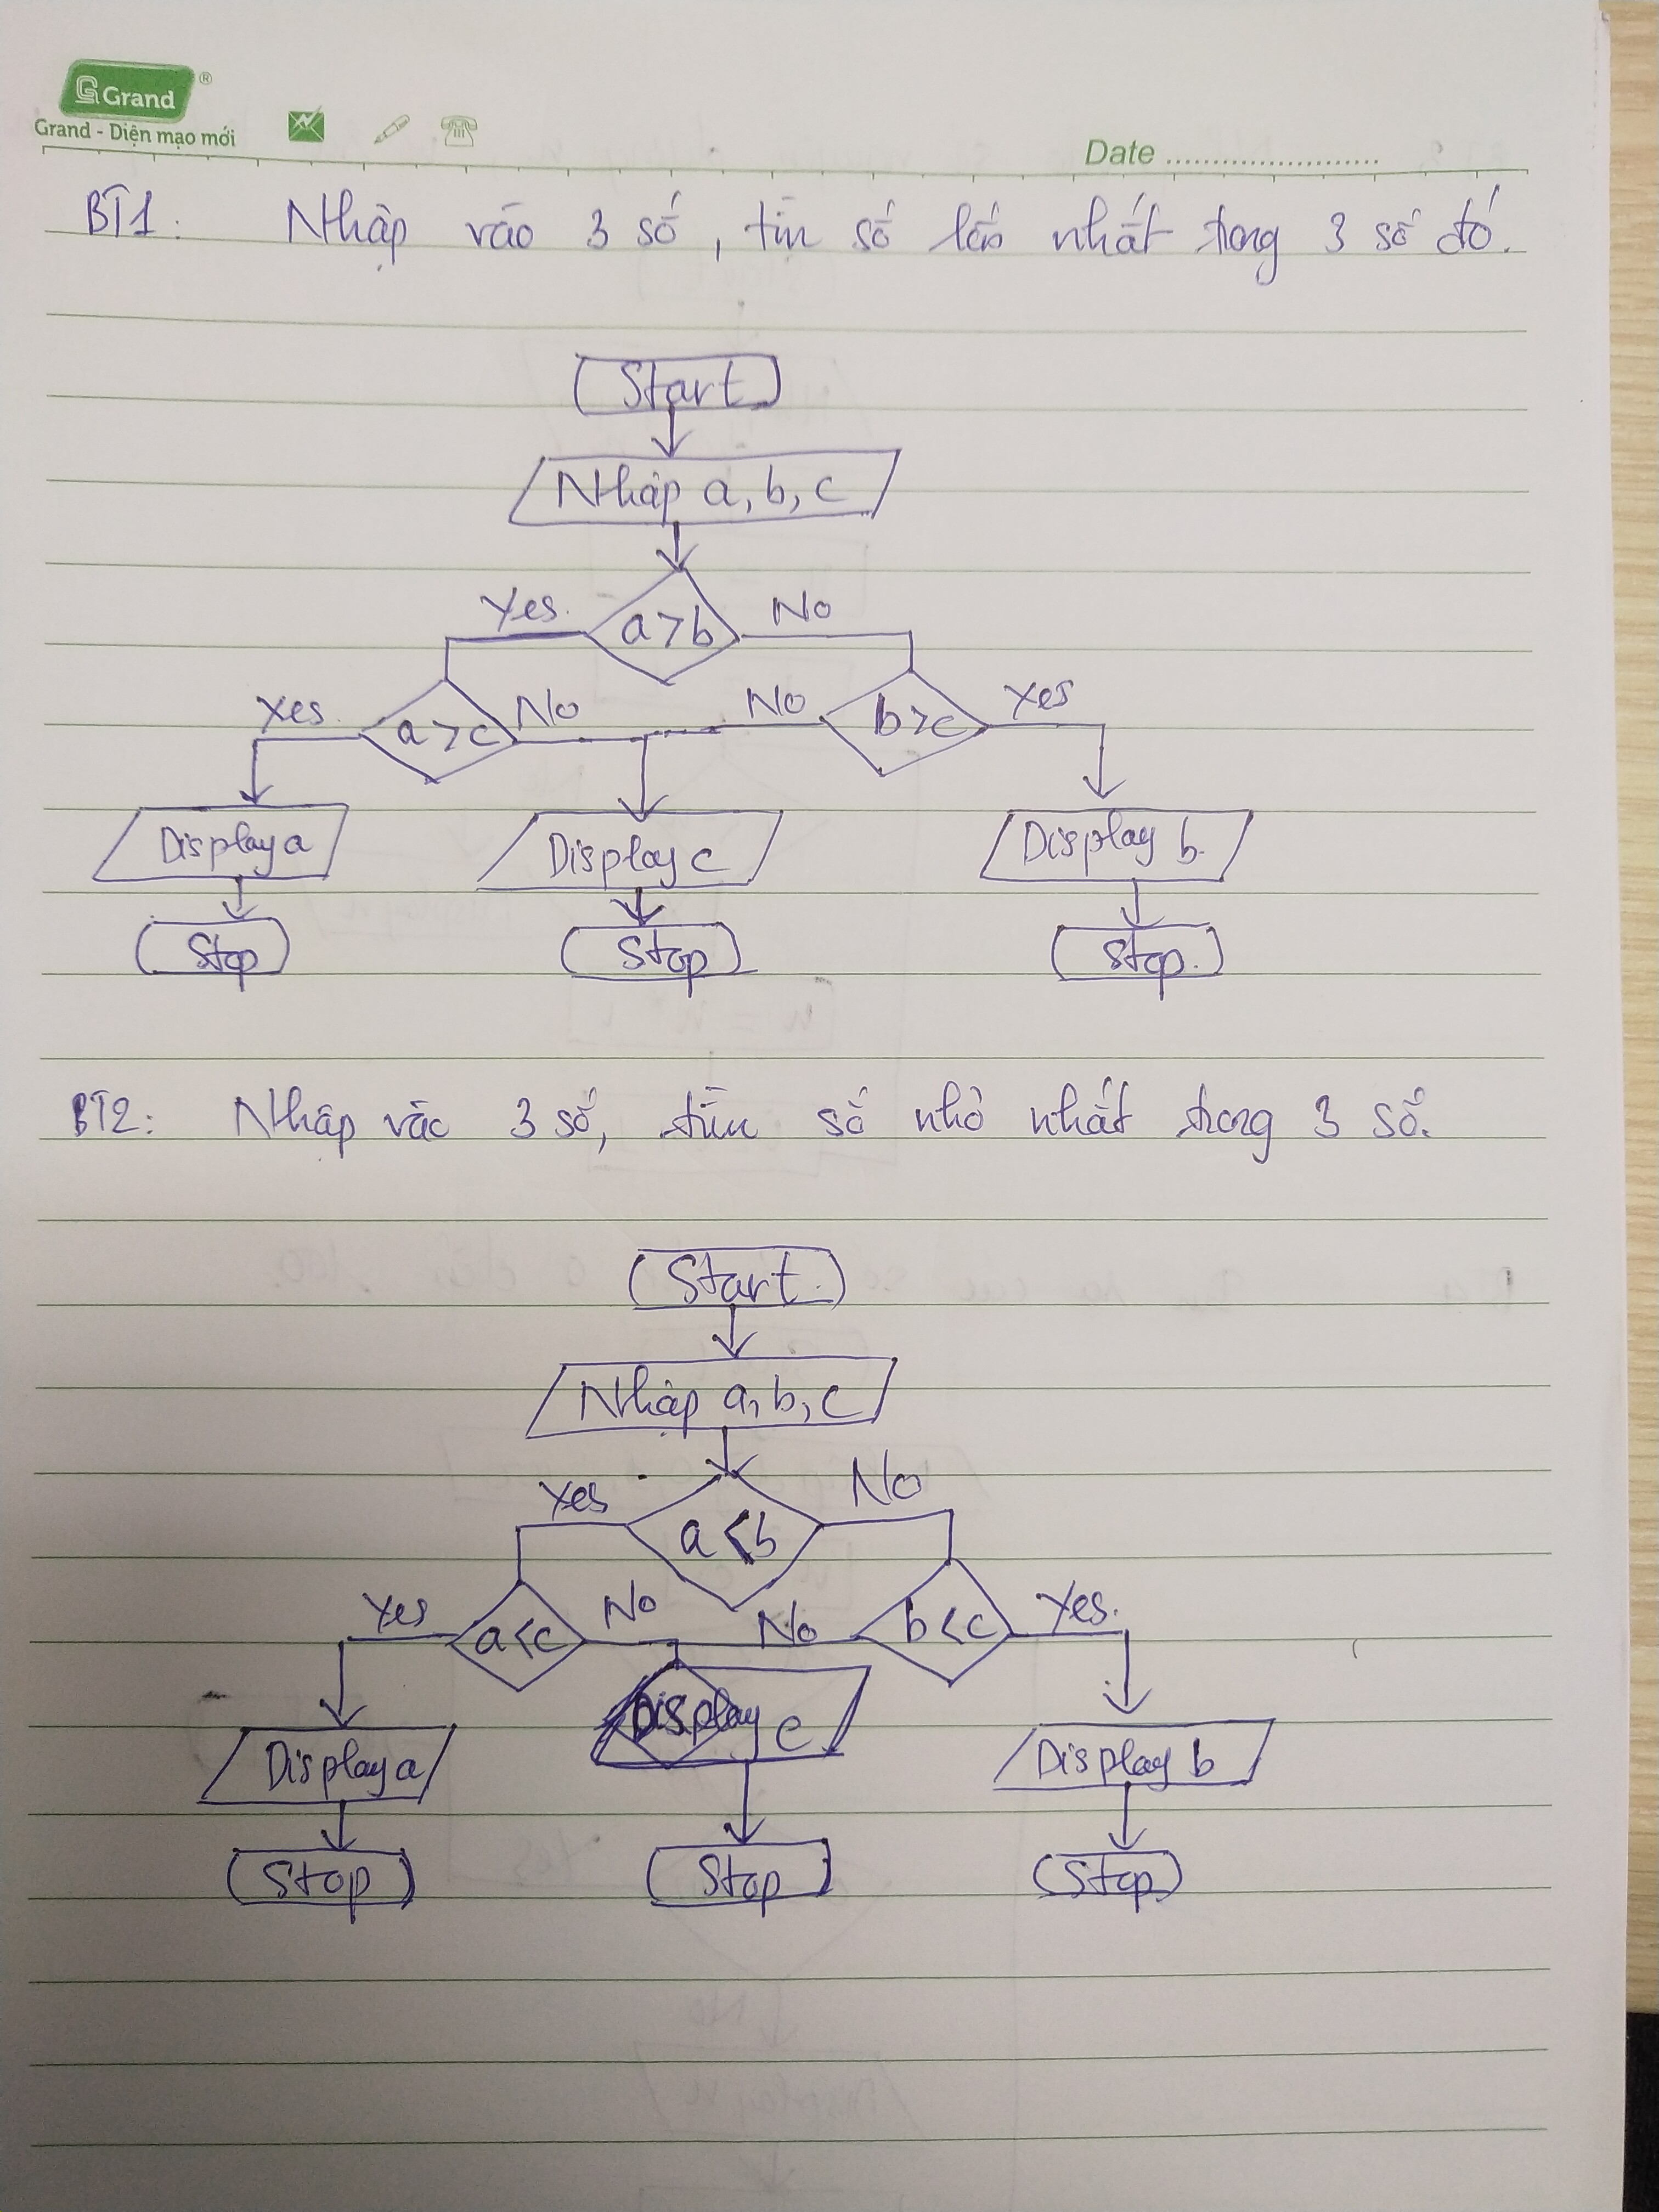 Grand ®
Grand - Diện mạo mới
Date ........................
BT1: Nhập vào 3 số, tìm số lớn nhất trong 3 số đó.
Start
Nhập a, b, c
Yes No
a > b
Yes No No Yes
a > c b > c
Display a Display c Display b.
Stop Stop Stop.
BT2: Nhập vào 3 số, tìm số nhỏ nhất trong 3 số.
Start.
Nhập a, b, c
Yes No
a < b
Yes No No Yes.
a < c b < c
Display c
Display a Display b
Stop Stop Stop